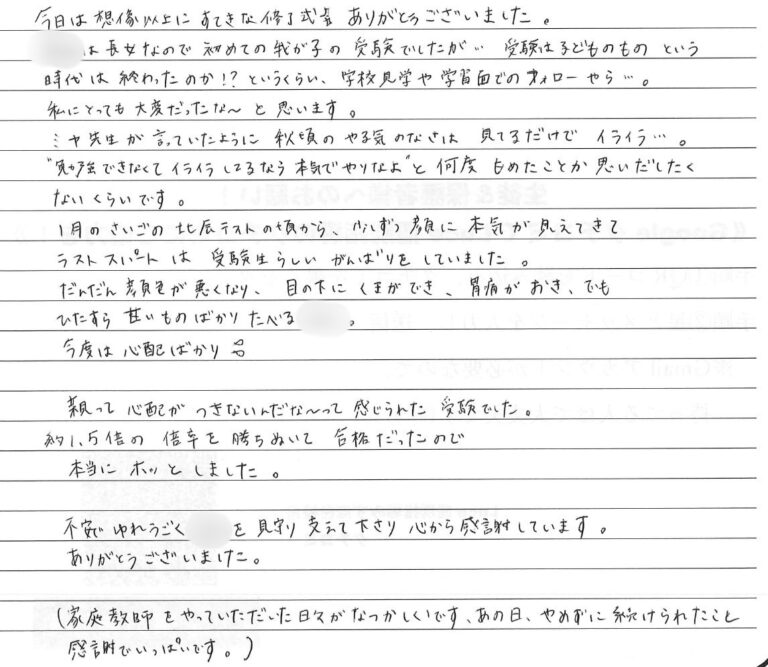 今日は想像以上にすてきな修了式 ありがとうございました。
は長女なので 初めての我が子の受験でしたが… 受験は子どものもの という
時代は終わったのか!?というくらい、学校見学や学習面でのフォローやら…。
私にとっても大変だったな〜と思います。
ミヤ先生が言っていたように秋頃のやる気のなさは 見てるだけで イライラ…。
"勉強できなくてイライラしてるなら本気でやりなよ"と何度 占めたことか思いだしたく
ないくらいです。
1月のさいごの北辰テストの頃から、少しずつ顔に本気が見えてきて
ラストスパートは 受験生らしいがんばりをしていました。
だんだん顔色が悪くなり、目の下にくまができ、胃痛がおき、でも
ひたすら甘いものばかりたべる 。
今度は心配ばかり
親って心配がつきないんだな〜って感じられた受験でした。
約1.5倍の倍率を勝ちぬいて合格だったので
本当にホッとしました。
不安で ゆれうごく を見守り支えて下さり心から感謝しています。
ありがとうございました。
(家庭教師をやっていただいた日々がなつかしいです、あの日、やめずに続けられたこと
感謝でいっぱいです。)